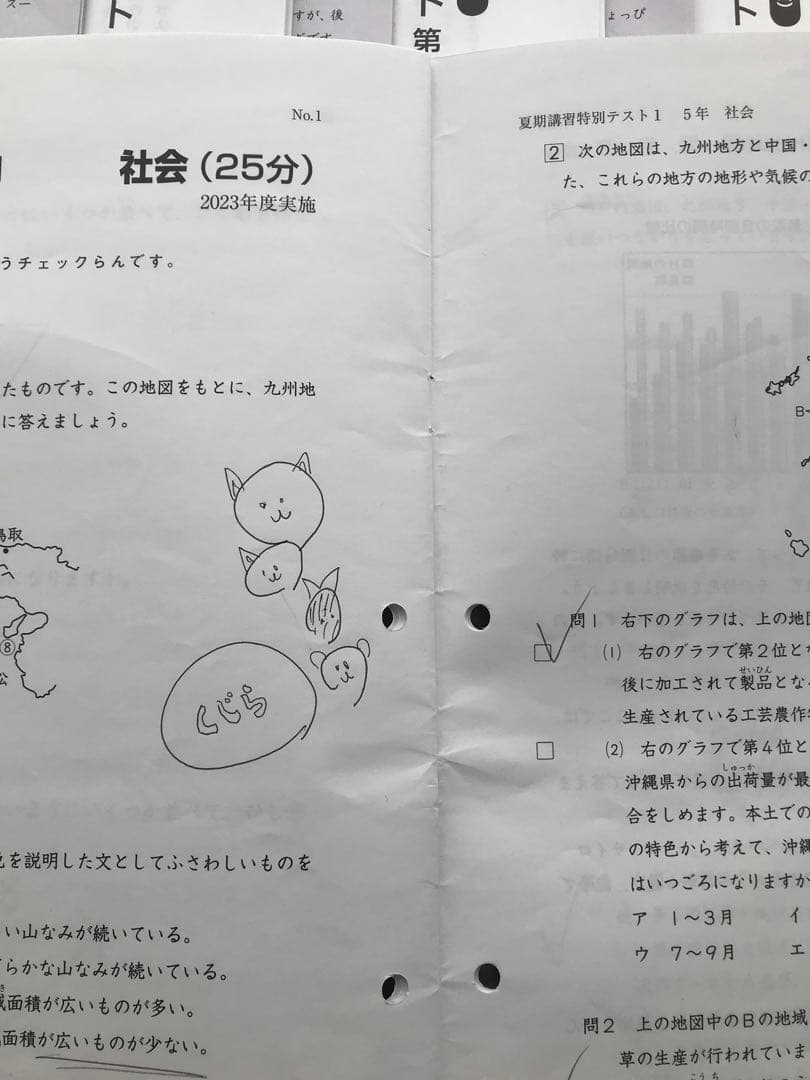 スー
ト
すが、後
ト
第
ょっぴ
ト
No.1
社会(25分)
2023年度実施
うチェックらんです。
たものです。この地図をもとに、九州地
に答えましょう。
鳥取
⑧
松
くじら
を説明した文としてふさわしいものを
い山なみが続いている。
らかな山なみが続いている。
面積が広いものが多い。
面積が広いものが少ない。
夏期講習特別テスト1 5年 社会
2 次の地図は、九州地方と中国・
た、これらの地方の地形や気候の
B
問1 右下のグラフは、上の地図
(1) 右のグラフで第2位とな
せいひん
後に加工されて製品とな
生産されている工芸農作
(2) 右のグラフで第4位と
しゅっか
沖縄県からの出荷量が最
合をしめます。本土での
の特色から考えて、沖縄
はいつごろになりますか
ア 1~3月 イ
ウ 7~9月 エ
問2 上の地図中のBの地域
草の生産が行われていま
こうち